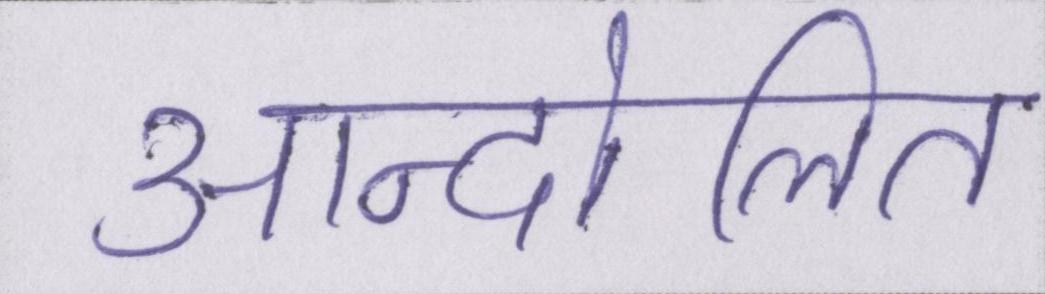 आन्दोलित